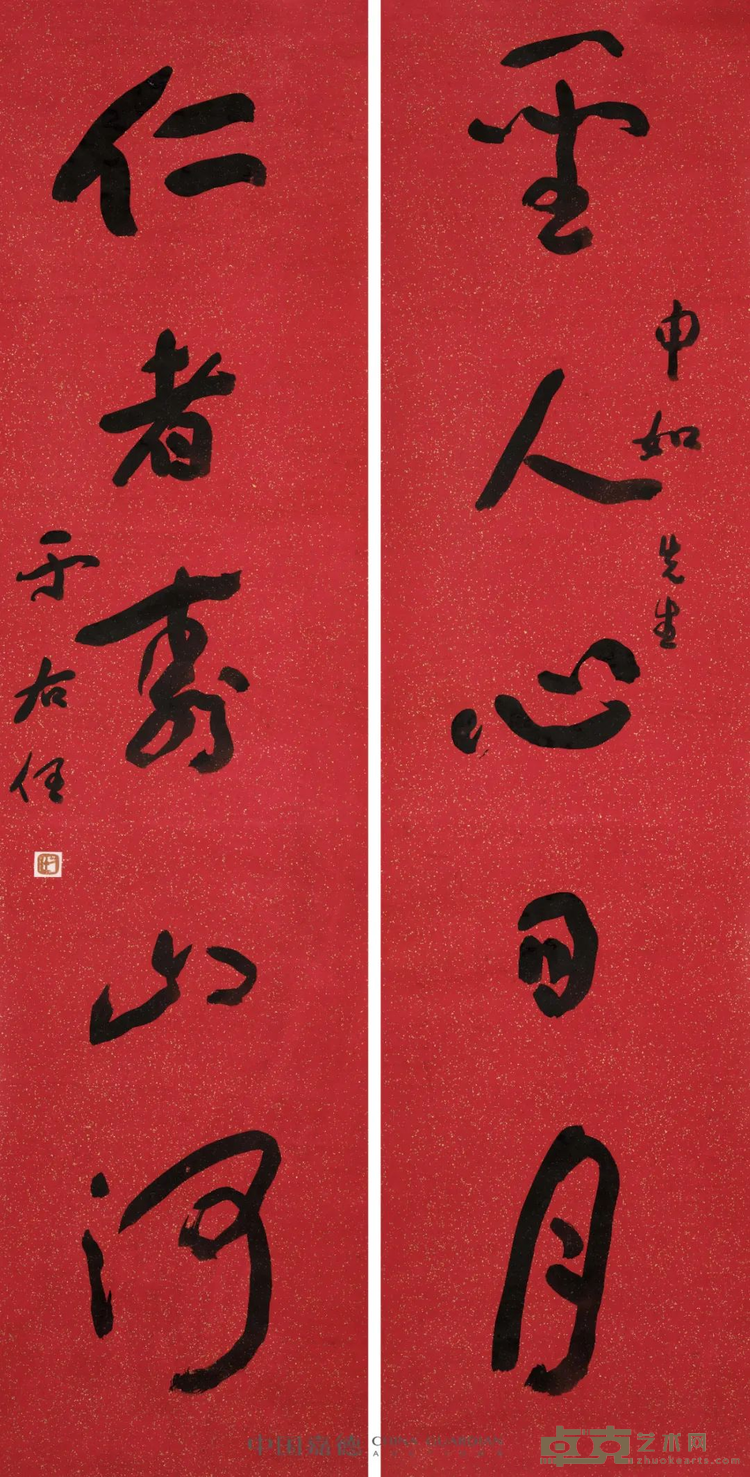 聖人心日月
申如先生
仁者壽山河
于右任
中国嘉德
CHINA GUARDIAN
卓克艺术网
zhuokearts.com